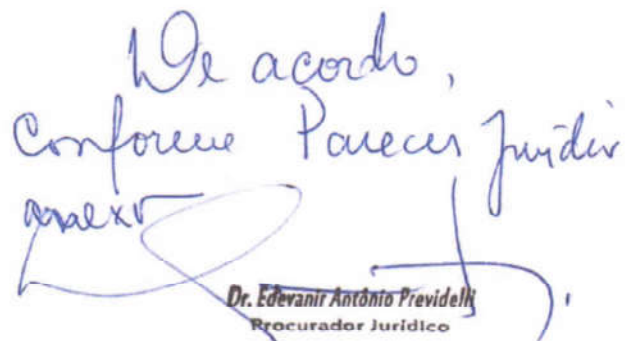 De acordo,
Conforme Parecer Jurídico
anexo
Dr. Edevanir Antônio Previdelli
Procurador Jurídico